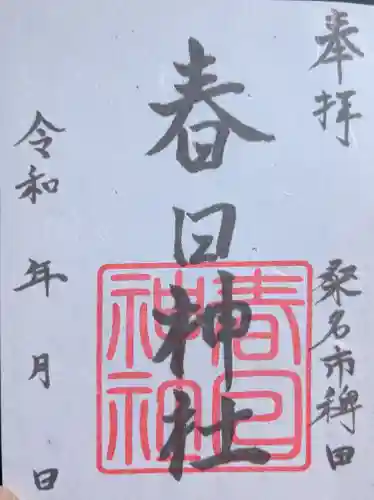 奉拝
桑名市稗田
春日神社
春日
神社
令和 年 月 日